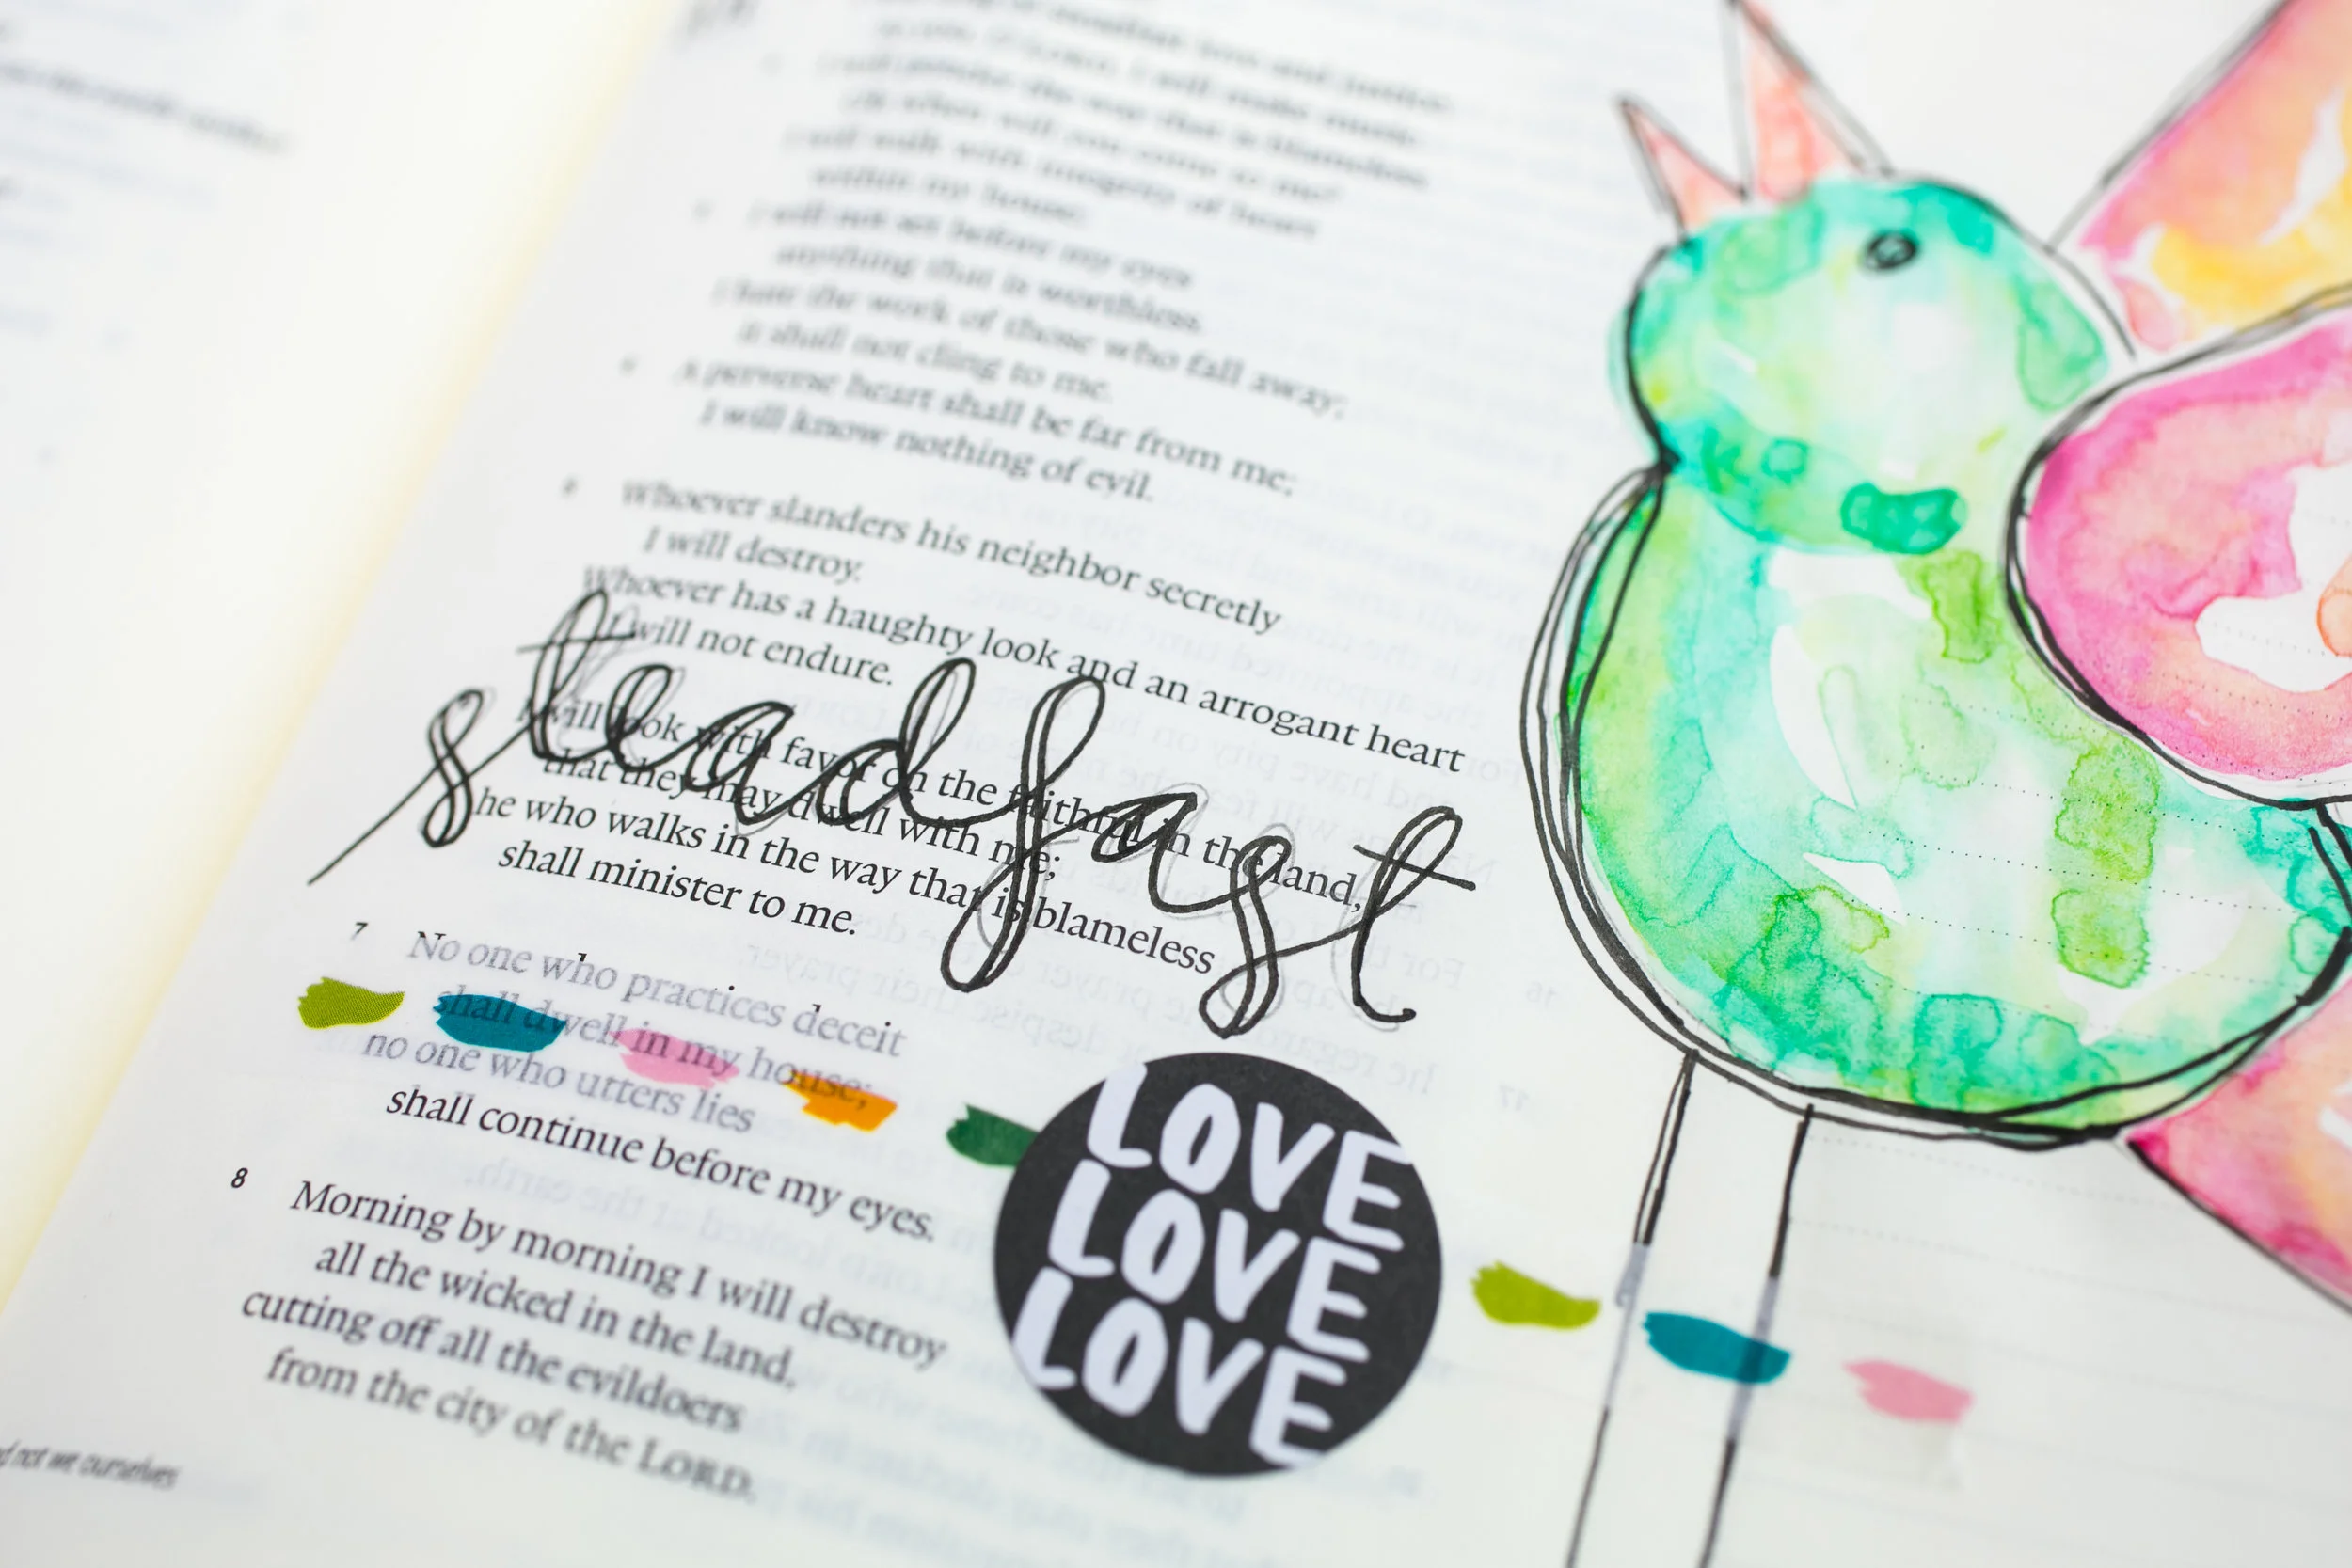 I will sing of steadfast love and justice;
to you, O LORD, I will make music.
I will ponder the way that is blameless.
Oh when will you come to me?
I will walk with integrity of heart
within my house;
I will not set before my eyes
anything that is worthless.
I hate the work of those who fall away;
it shall not cling to me.
A perverse heart shall be far from me;
I will know nothing of evil.
Whoever slanders his neighbor secretly
I will destroy.
Whoever has a haughty look and an arrogant heart
I will not endure.
steadfast
I will look with favor on the faithful in the land,
that they may dwell with me;
he who walks in the way that is blameless
shall minister to me.
7 No one who practices deceit
shall dwell in my house;
no one who utters lies
shall continue before my eyes.
8 Morning by morning I will destroy
all the wicked in the land,
cutting off all the evildoers
from the city of the LORD.
LOVE
LOVE
LOVE
not we ourselves